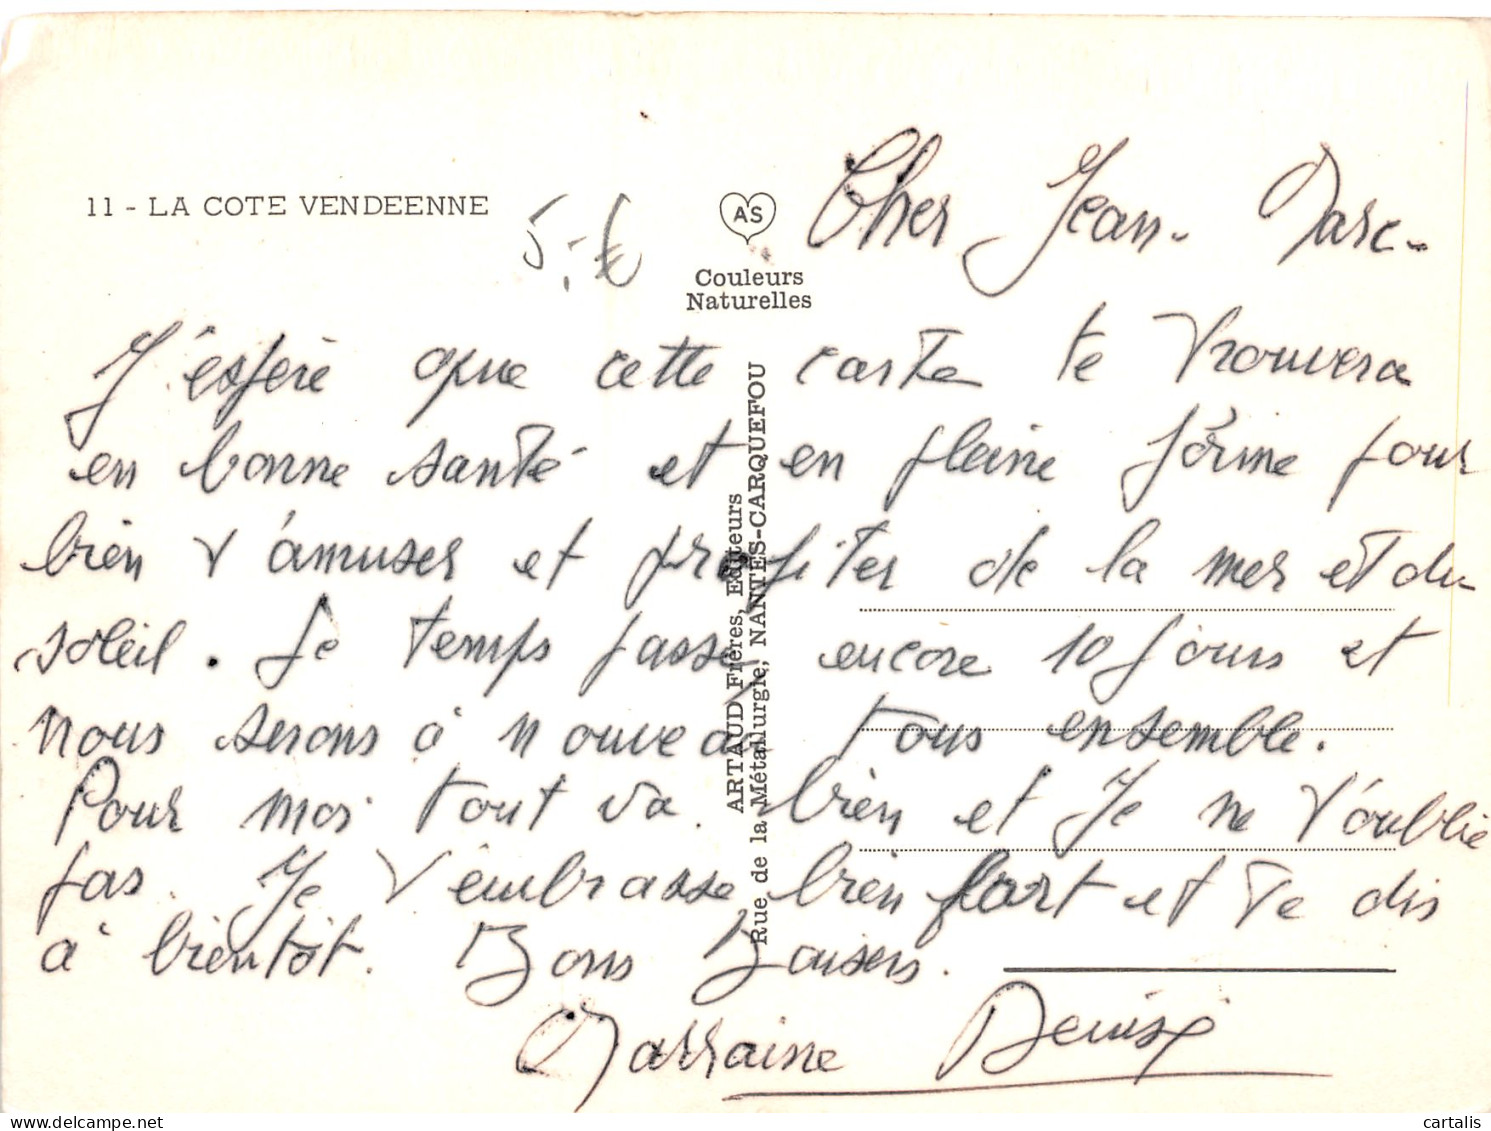 11 - LA COTE VENDEENNE
5.-€
AS
Couleurs
Naturelles
ARTAUD Frères, Editeurs
Rue de la Métallurgie, NANTES-CARQUEFOU
Cher Jean-Marc-
J'espère que cette carte te trouvera
en bonne santé et en pleine forme pour
bien t'amuser et profiter de la mer et du
soleil. Le temps passe encore 10 jours et
nous serons à nouveau tous ensemble.
Pour moi tout va bien et je ne t'oublie
pas. Je t'embrasse bien fort et te dis
à bientôt. Bons Baisers.
Marraine Denise
delcampe.net
cartalis